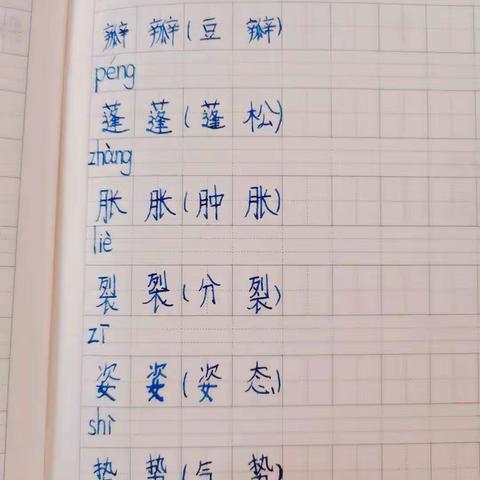 瓣 瓣(豆 瓣)
péng
蓬 蓬(蓬 松)
zhàng
胀 胀(肿 胀)
liè
裂 裂(分 裂)
zī
姿 姿(姿 态)
shì
势 势(气 势)